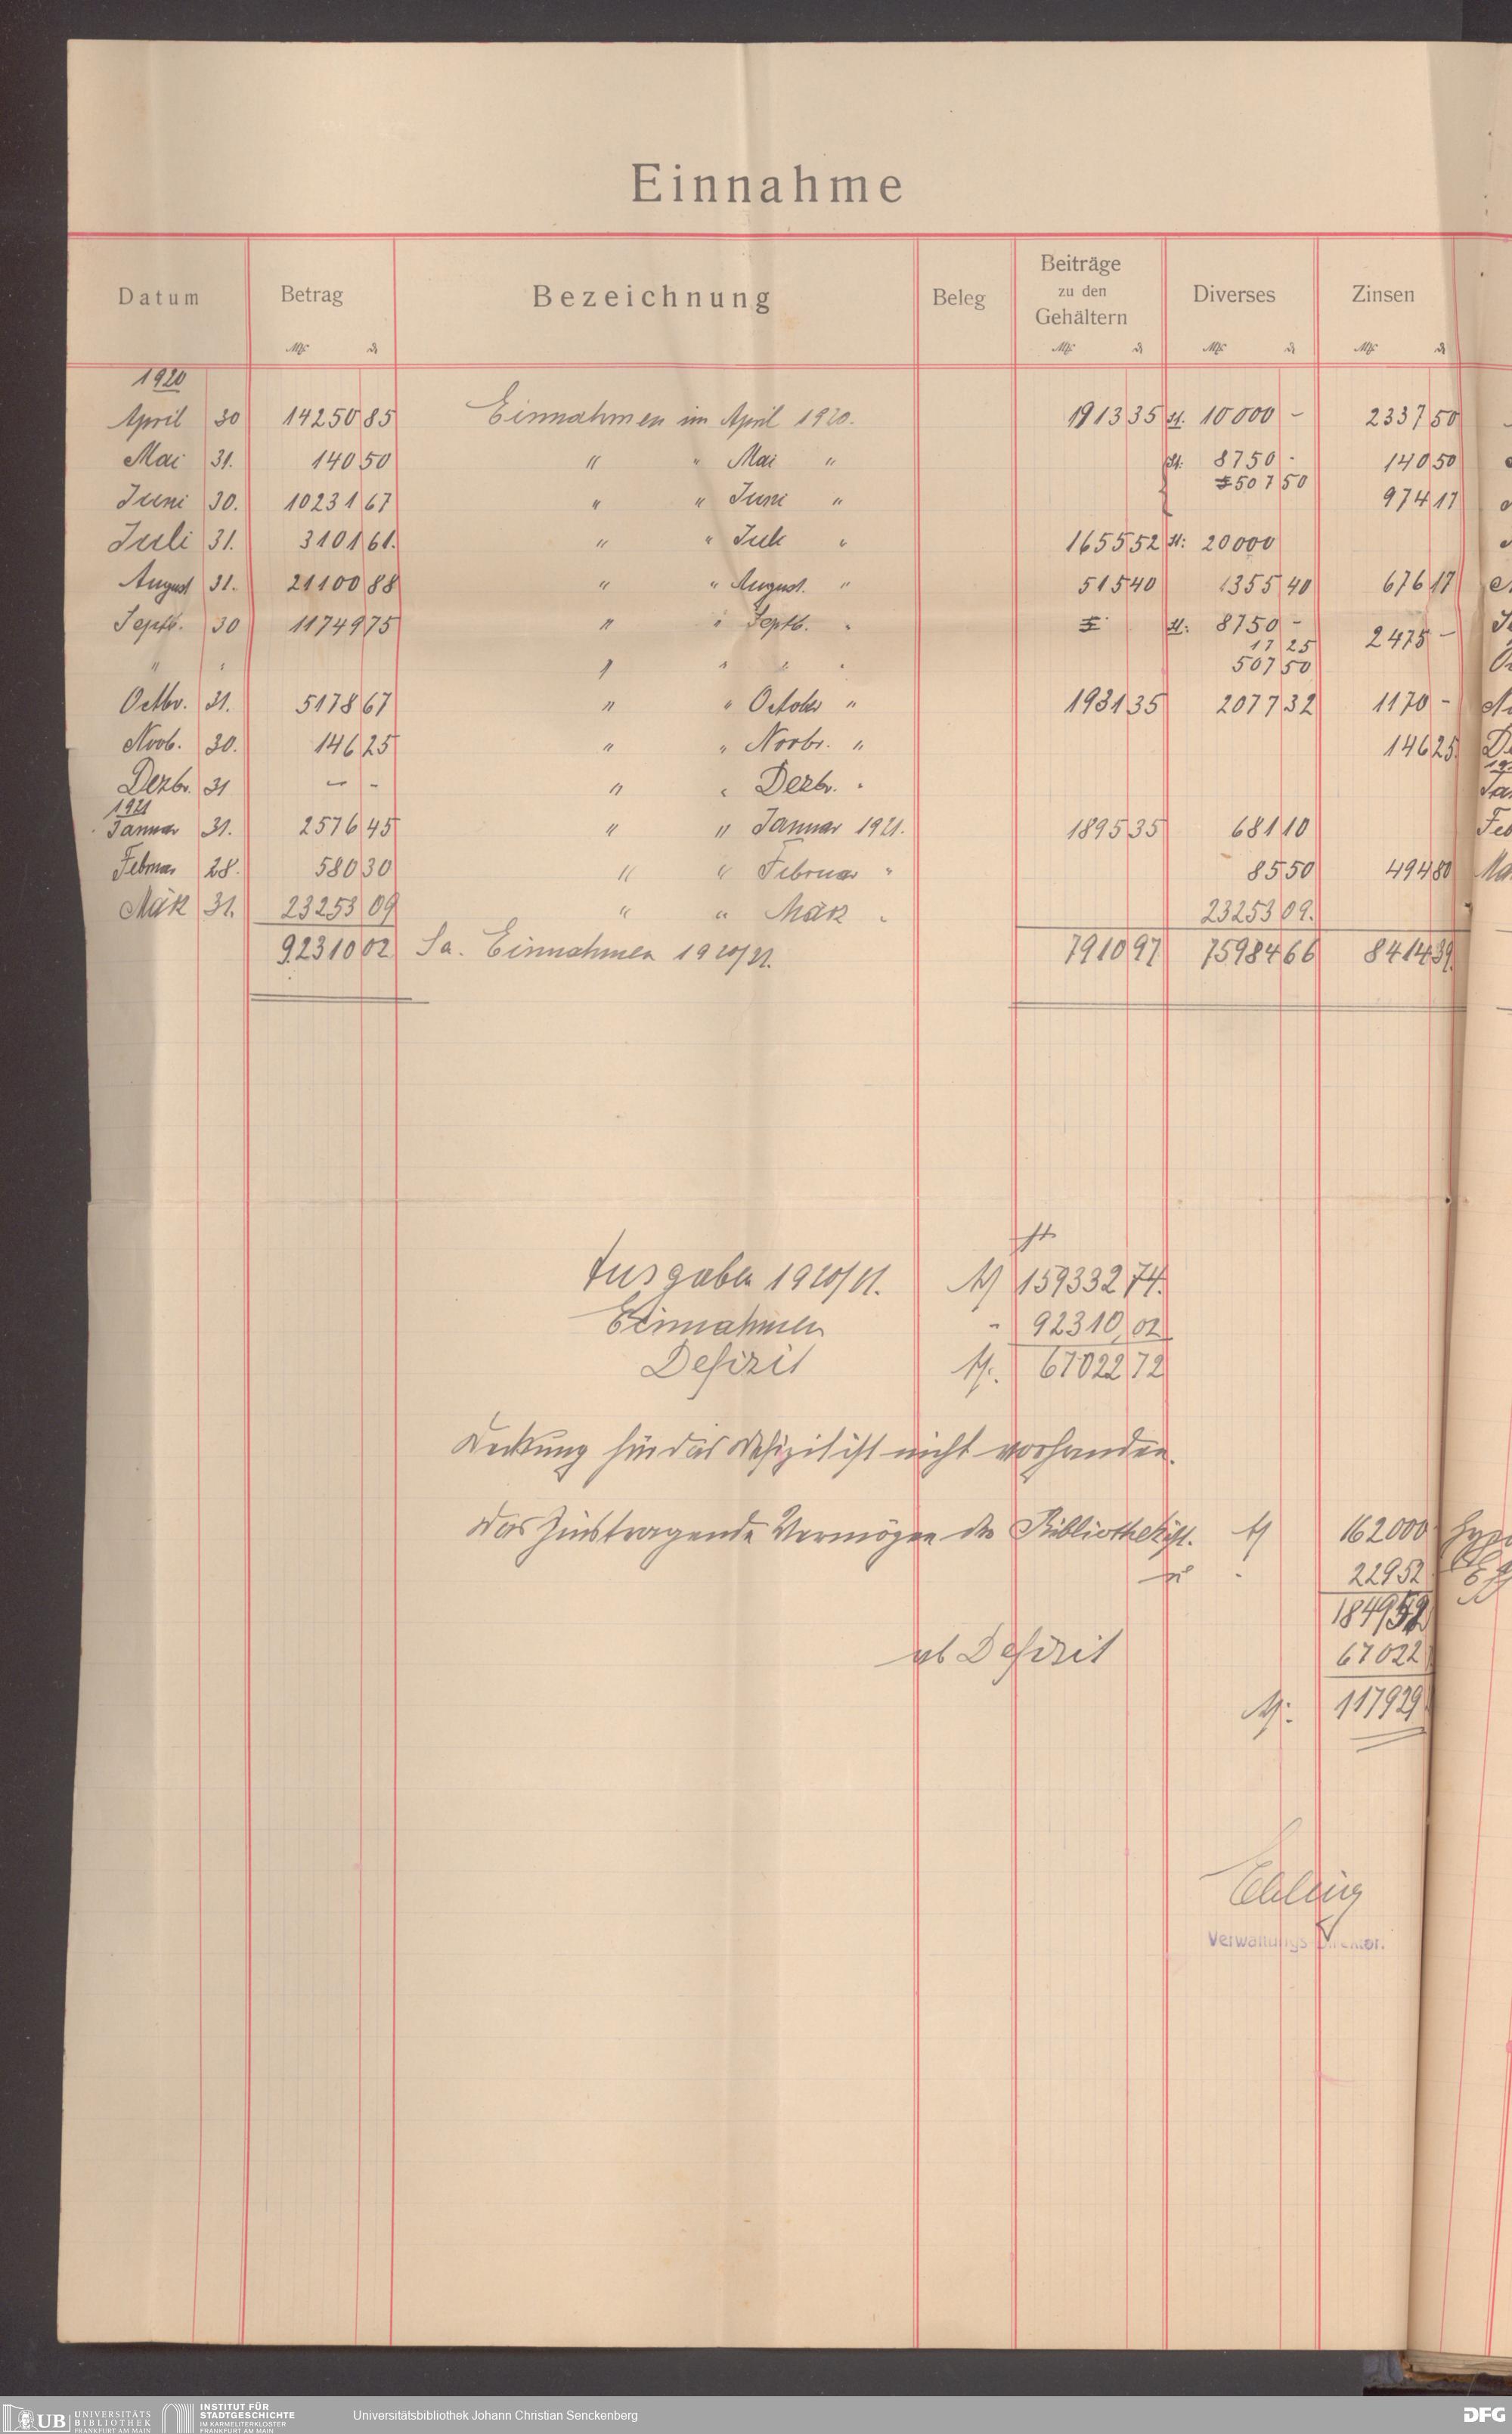 Einnahme
Datum Betrag Bezeichnung Beleg Beiträge zu den Gehältern Diverses Zinsen
M ₰ M ₰ M ₰ M ₰
1920
April 30 14250 85 Einnahmen im April 1920. 1913 35 St. 10000 - 2337 50
Mai 31. 140 50 " " Mai " St. 8750 - 140 50
Juni 30. 10231 67 " " Juni " 507 50 974 17
Juli 31. 3101 61. " " Juli " 1655 52 St: 20000
August 31. 21100 88 " " August. " 515 40 1355 40 676 17
Septb. 30 11749 75 " " Septb. " St: 8750 - 2475 -
17 25
" " " " " " 507 50
Octbr. 31. 5178 67 " " October " 1931 35 2077 32 1170 -
Novb. 30. 146 25 " " Novbr. " 146 25
Dezbr. 31 - - " " Dezbr. "
1921
Januar 31. 2576 45 " " Januar 1921. 1895 35 681 10
Februar 28. 580 30 " " Februar " 85 50 494 80
Märk 31. 23253 09 " " Märk " 23253 09.
92310 02 Sa. Einnahmen 1920/21. 7910 97 75984 66 8414 39
Ausgaben 1920/21. M 159332 74.
Einnahmen " 92310,02
Defizit M. 67022 72
Deckung für das Defizit ist nicht vorhanden.
Das Zinstragende Vermögen der Bibliothek ist. M 162000
" 22952
184952
ab Defizit 67022
M: 117929
Ebling
Verwaltungs-Direktor.
UB UNIVERSITÄTS BIBLIOTHEK FRANKFURT AM MAIN
INSTITUT FÜR STADTGESCHICHTE IM KARMELITERKLOSTER FRANKFURT AM MAIN
Universitätsbibliothek Johann Christian Senckenberg
DFG